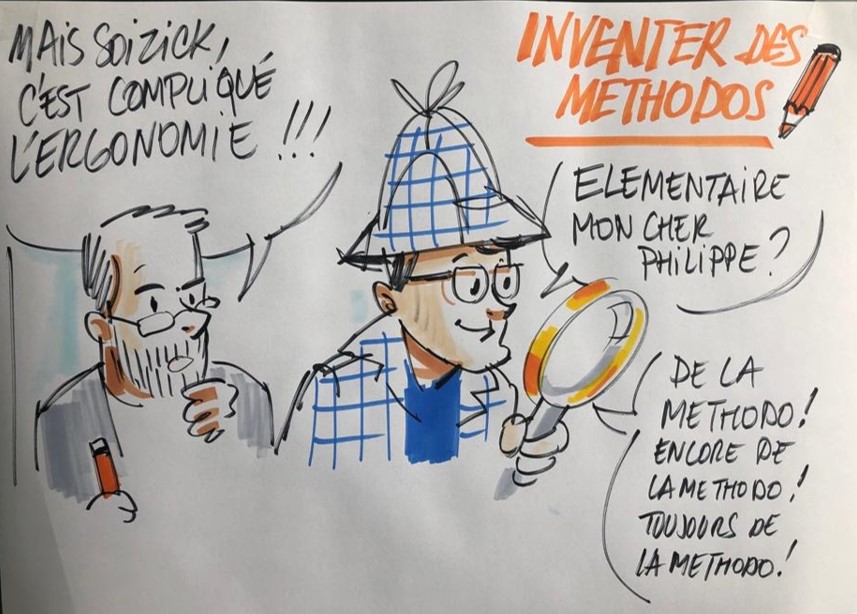 MAIS SOIZICK,
C'EST COMPLIQUÉ
L'ERGONOMIE !!!
INVENTER DES
METHODOS
ELEMENTAIRE
MON CHER
PHILIPPE ?
DE LA
METHODO !
ENCORE DE
LA METHODO !
TOUJOURS DE
LA METHODO !